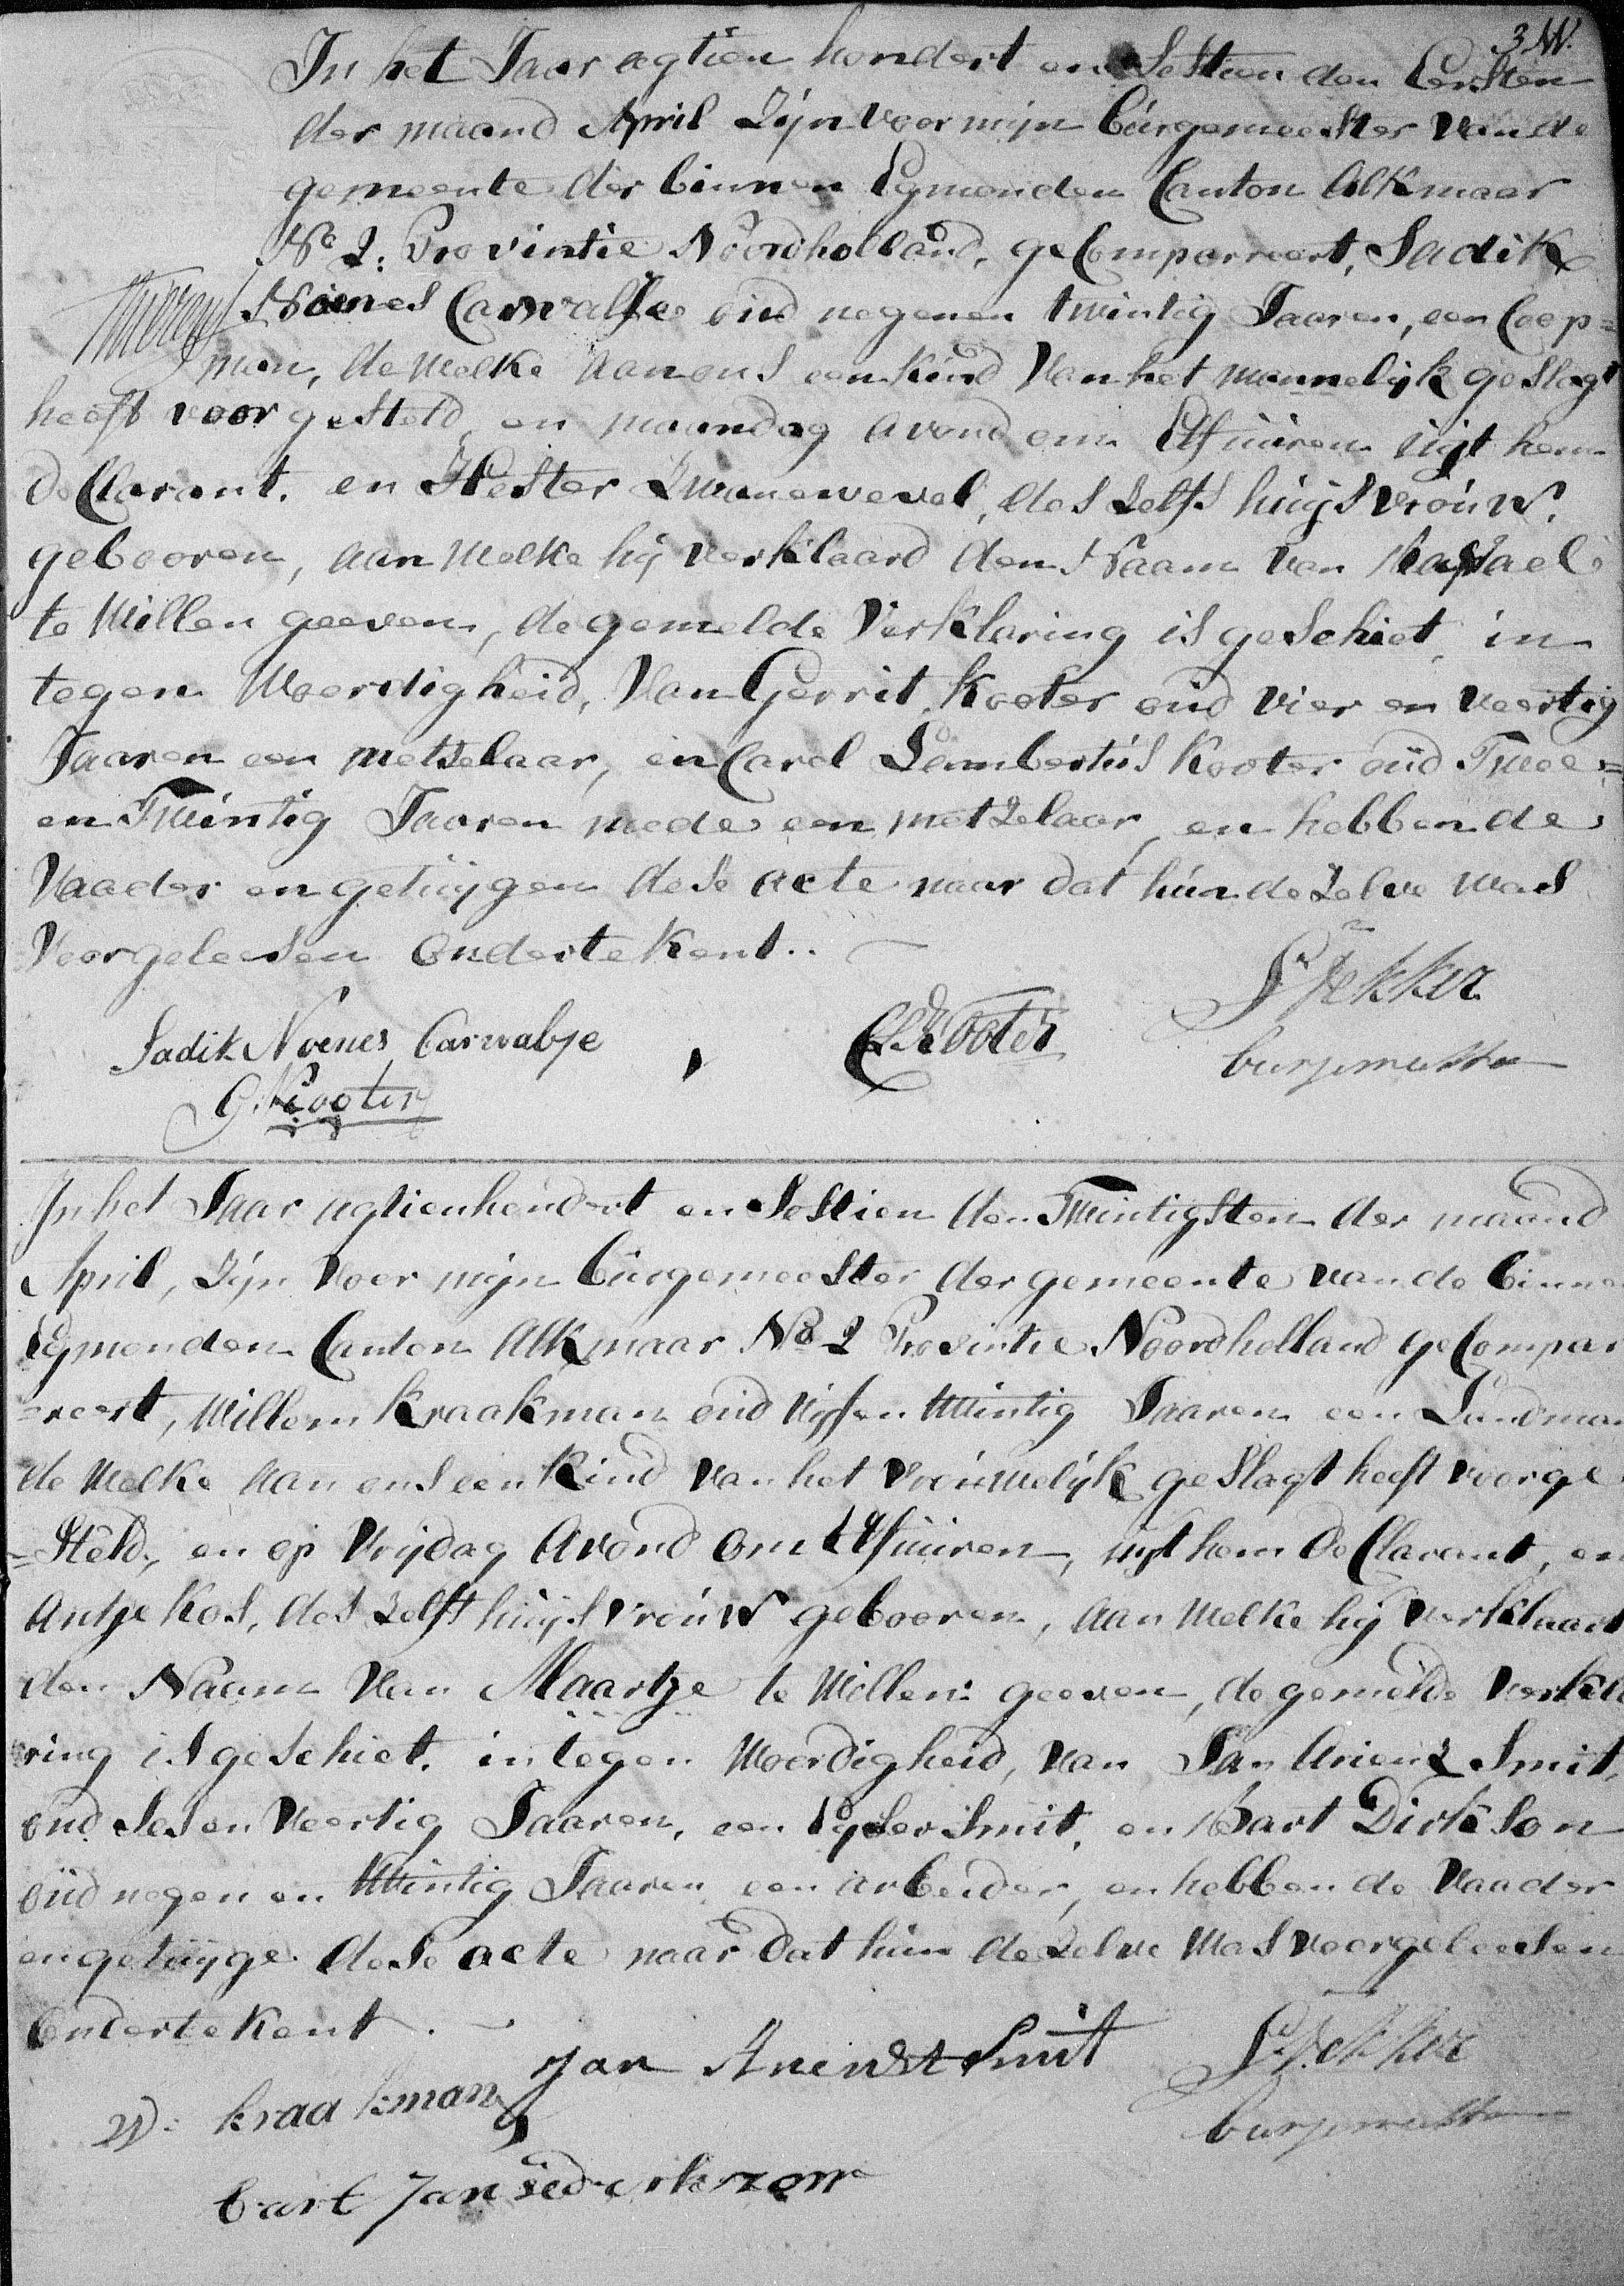 3 W.
In het Jaar agtien hondert en Sestien den Eersten
der maand April Zijn voor mijn burgemeester van de
gemeente der binnen Egmonden Canton Alkmaar
No 2: Provintie Noordholland, geCompareert, Sadik
Noenes Carwalje oud negenen twintig Jaaren, een Coop=
man, de Welke aan ons een kind van het mannelijk geslagt
heeft voorgesteld, en maandag avond om Elf uuren uijt hem
deClarant. en Hester Zwanewevel, des Zelfs huijsvrouw.
gebooren, aan Welke hij verklaard den Naam van Raphael
te Willen geeven, de gemelde Verklaring is geschiet, in
tegen Woordigheid, van Gerrit Kooter oud vier en veertig
Jaaren een metselaar, en Carel Lambertus Kooter oud Twee=
en Twintig Jaaren mede een metzelaar, en hebben de
Vaader en getuijgen dese acte naar dat hun de Zelve was
voorgeleesen Ondertekent..
Sadik Noenes Carwalje
CLKooter
P Dekker
burgemeester
G Kooter
In het Jaar agtienhondert en Sestien den Twintigsten der maand
April, Zijn voor mijn burgemeester der gemeente van de binne
Egmonden Canton Alkmaar No 2 Provintie Noordholland geCompar
=reert, Willem Kraakman oud vijfen twintig Jaaren een Landman
de Welke aan ons een kind van het vrouwelijk geslagt heeft voorge
=steld, en op vrijdag avond om Elf uuren, uijt hem deClarant, en
Antje Kos, des Zelfs huijsvrouw gebooren, aan Welke hij verklaart
den Naam van Maartje te Willen geeven, de gemelde verkla
ring is geschiet. in tegen Woordigheid, van Jan Arienz Smit,
oud ses en veertig Jaaren, een Eyser Smit, en Bart Dirkson
oud negen en twintig Jaaren een arbeider, en hebben de vaader
en getuijge dese acte naar dat hun de Zelve was voorgeleesen
Ondertekent.
Jan Arendst Smit
P Dekker
W: kraakman
burgemeester
bart Jansedirkzon